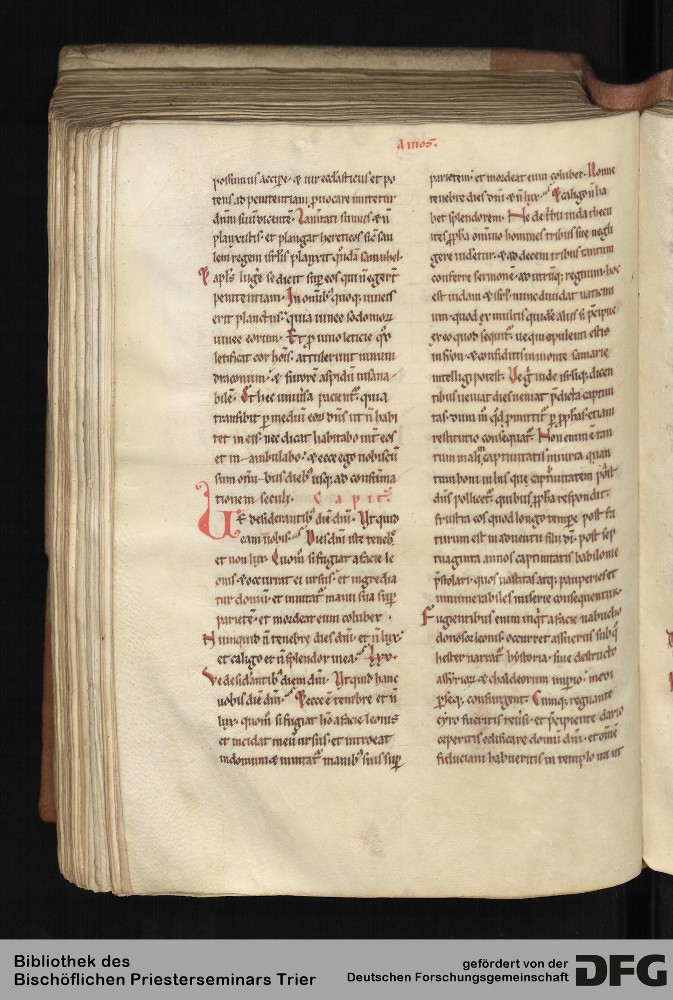 amos.
possimus accipe. & uir ecclasticus et po
tens ad penitentiam puocare imitetur
dnm suu dicente. Lamtati sumus & n
planxistis. et plangat hereticos sic sau
lem regem isrlis planxit qnda samuhel.
& apls luge se dicit sup eos qui n egert
penitentiam. In omib; quoq; uineis
erit planctus. quia uinee sodomoru
uinee eorum. Et p uino leticie qd
letificat cor hois. attulerunt uinum
draconum. & furore aspidu insana
bile. Et hec uniusa pacient. quia
transibit p mediu eoru dns ut n habi
tet in eis. nec dicat habitabo int eos
et in ambulabo. & ecce ego nobiscu
sum omi bus dieb; usq; ad consuma
tionem seculi. Capit.
Ue desiderantib; die dni. Ut quid
eam uobis. Dies dni iste teneb
et non lux. Quom si fugiat a facie le
onis. & occurrat ei ursus. et ingredia
tur domu. et innitat manu sua sup
pariete. et mordeat eum coluber.
Numquid n tenebre dies dni. et n lux.
et caligo et n splendor in ea. LXX.
Ve desidantib; diem dni. Ut quid hanc
uobis die dni. & ecce e tenebre et n
lux. quom si fugiat ho a facie leonis
et incidat in eu ursus. et introeat
in domum & innitat manib; suis sup
parietem. et mordeat eum coluber. Nonne
tenebre dies dni & n lux. & caligo n ha
bet splendorem. Ne de trib; iuda thecu
ites ppha omino homines tribus sue negli
gere uidetur. & ad decem tribus tantum
conferre sermone. ad utruq; regnum. hoc
est iudam & isrl. nunc diuidat uaticini
um. quod ex multis quide aliis s; pcipue
ex eo quod sequit. ue qui opulenti estis
in syon. & confiditis in monte samarie
intelligi potest. Ve g inde isrliq; dicen
tibus ueniat dies ueniat pdicta captiui
tas. dum m qd pmittit p pphas. etiam
restitutio consequat. Non enim e tan
tum mali captiuitatis iniuria quan
tum boni in his que captiuitatem post
dns pollicet. quibus ppha respondit.
frustra eos quod longo tempe post fu
turum est in aduentu filii di. post sep
tuaginta annos captiuitatis babilonie
pstolari. quos uastitas atq; pauperies et
innumerabiles miserie consequentur.
Fugientibus enim inqt a facie nabucho
donosor leonis. occurret assuerus sub q
hester narrat hystoria. siue destructo
assyrioru & chaldeorum impio. medi
perseq; consurgent. Cumq; regnante
cyro fueritis reusi. et pcipiente dario
ceperitis edificare domu dni. et ome
fiduciam habueritis in templo ita ut
Bibliothek des
Bischöflichen Priesterseminars Trier
gefördert von der
Deutschen Forschungsgemeinschaft
DFG